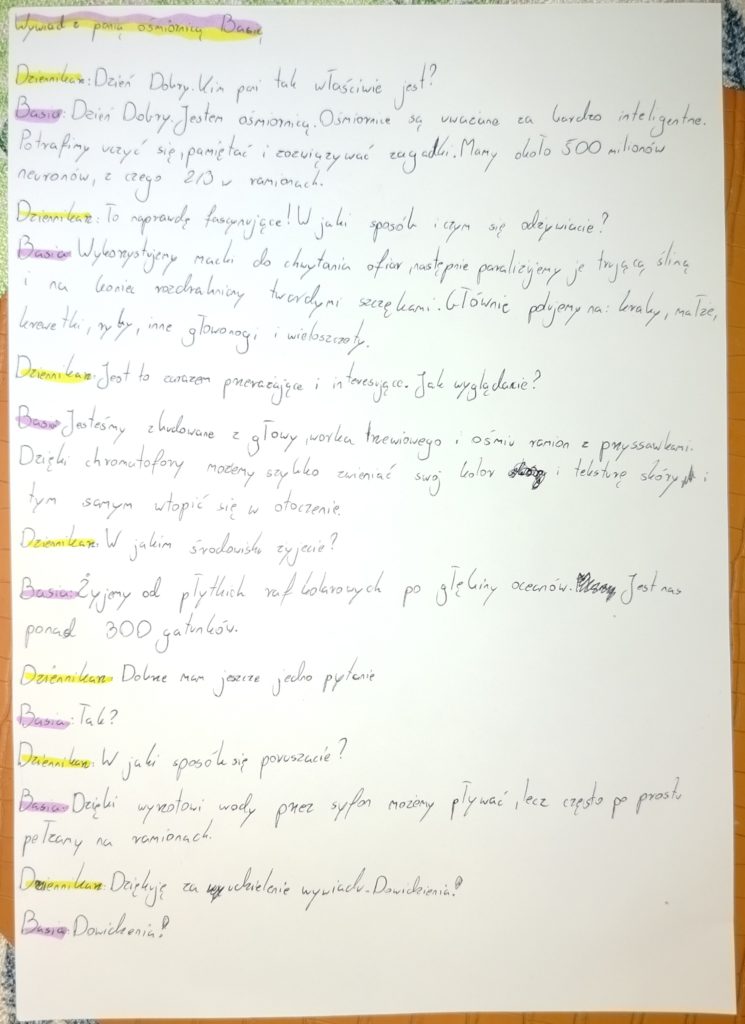 Wywiad z panią ośmiornicą Basią
Dziennikarz: Dzień Dobry. Kim pani tak właściwie jest?
Basia: Dzień Dobry. Jestem ośmiornicą. Ośmiornice są uważane za bardzo inteligentne.
Potrafimy uczyć się, pamiętać i rozwiązywać zagadki. Mamy około 500 milionów
neuronów, z czego 2/3 w ramionach.
Dziennikarz: To naprawdę fascynujące! W jaki sposób i czym się odżywiacie?
Basia: Wykorzystujemy macki do chwytania ofiar, następnie paraliżujemy je trującą śliną
i na koniec rozdrabniamy twardymi szczękami. Głównie polujemy na: kraby, małże,
krewetki, ryby, inne głowonogi i wieloszczety.
Dziennikarz: Jest to zarazem przerażające i interesujące. Jak wyglądacie?
Basia: Jesteśmy zbudowane z głowy, worka trzewiowego i ośmiu ramion z przyssawkami.
Dzięki chromatofory możemy szybko zmieniać swój kolor i teksturę skóry i
tym samym wtopić się w otoczenie.
Dziennikarz: W jakim środowisku żyjecie?
Basia: Żyjemy od płytkich raf koralowych po głębiny oceanów. Jest nas
ponad 300 gatunków.
Dziennikarz: Dobrze mam jeszcze jedno pytanie
Basia: Tak?
Dziennikarz: W jaki sposób się poruszacie?
Basia: Dzięki wyrzutowi wody przez syfon możemy pływać, lecz często po prostu
pełzamy na ramionach.
Dziennikarz: Dziękuję za udzielenie wywiadu. Dowidzenia!
Basia: Dowidzenia!